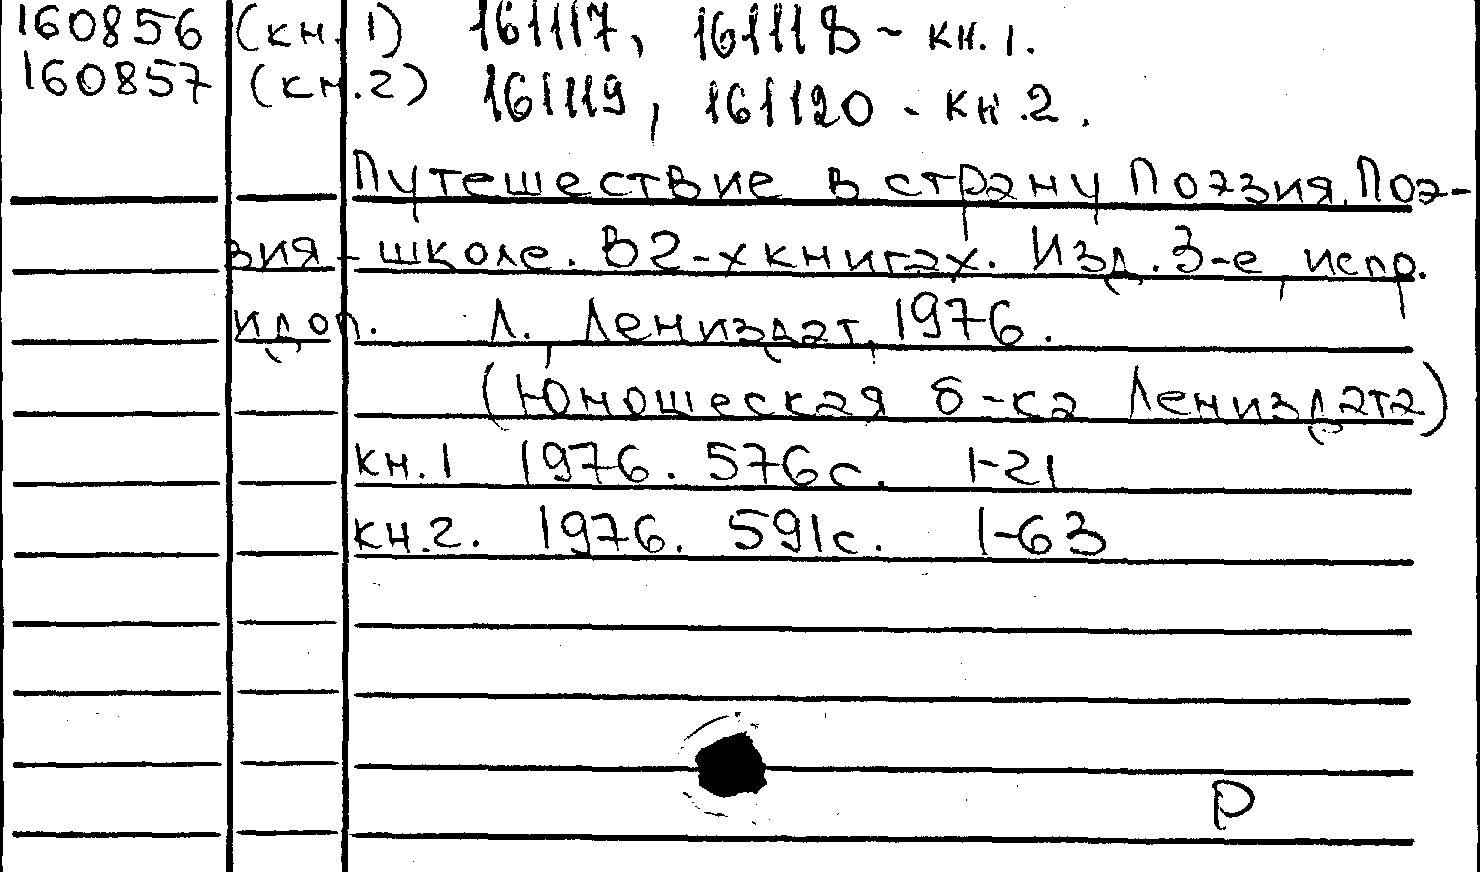 160856 (кн. 1) 161117, 161118 - кн. 1.
160857 (кн. 2) 161119, 161120 - кн. 2.
Путешествие в страну Поэзия. Поэ-
зия - школе. В 2-х книгах. Изд. 3-е, испр.
и доп. Л., Лениздат, 1976.
(Юношеская б-ка Лениздата)
кн. 1 1976. 576с. 1-21
кн. 2. 1976. 591с. 1-63
Р